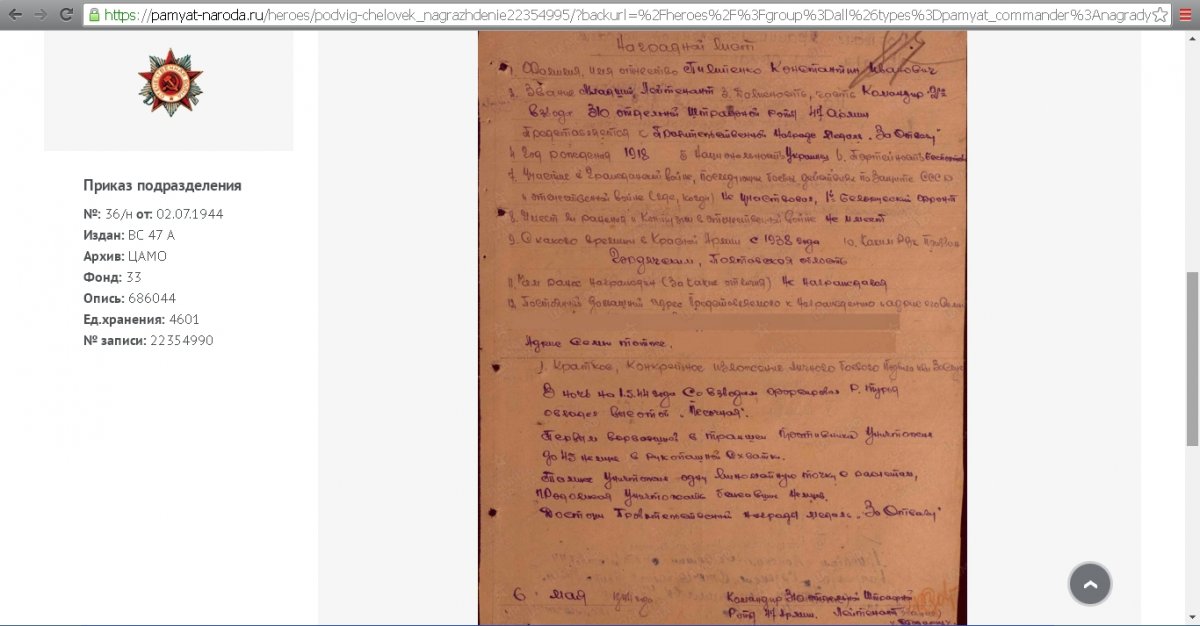 https://pamyat-naroda.ru/heroes/podvig-chelovek_nagrazhdenie22354995/?backurl=%2Fheroes%2F%3Fgroup%3Dall%26types%3Dpamyat_commander%3Anagrady
Приказ подразделения
№: 36/н от: 02.07.1944
Издан: ВС 47 А
Архив: ЦАМО
Фонд: 33
Опись: 686044
Ед.хранения: 4601
№ записи: 22354990
Наградной лист
1. Фамилия, имя отчество Пилипенко Константин Иванович
2. Звание Младший Лейтенант 3. Должность, часть Командир
взвода отдельной Штрафной роты 47 Армии
Представляется к Правительственной награде медаль "За Отвагу"
4. Год рождения 1918 5 Национальность Украинец 6. Партийность
7. Участие в Гражданской войне, последующих боевых действиях по защите СССР
и отечественной войне (где, когда) Не участвовал, 1й Белорусский фронт
8. Имеет ли ранения и Контузии в отечественной войне не имеет
9. С какого времени в Красной Армии с 1938 года 10. Каким РВК Призван
Полтавская область
11. Чем ранее награжден (За какие отличия) Не награждался
12. Постоянный домашний адрес Представляемого к награждению и адрес его семьи
Адрес семьи тот же.
1. Краткое, Конкретное изложение личного боевого Подвига или Заслуг
В ночь на 1.5.44 года Со взводом форсировал р. Турья
овладел высотой "Песочная".
Первым ворвавшись в траншеи Противника Уничтожил
до немцев в рукопашной схватке.
Также Уничтожил одну пулеметную точку с расчетом,
Продолжал Уничтожать бежавших Немцев.
Достоин Правительственной награды медаль "За Отвагу"
6 мая 1944 года
Командир отдельной Штрафной
Роты 47 Армии. Лейтенант